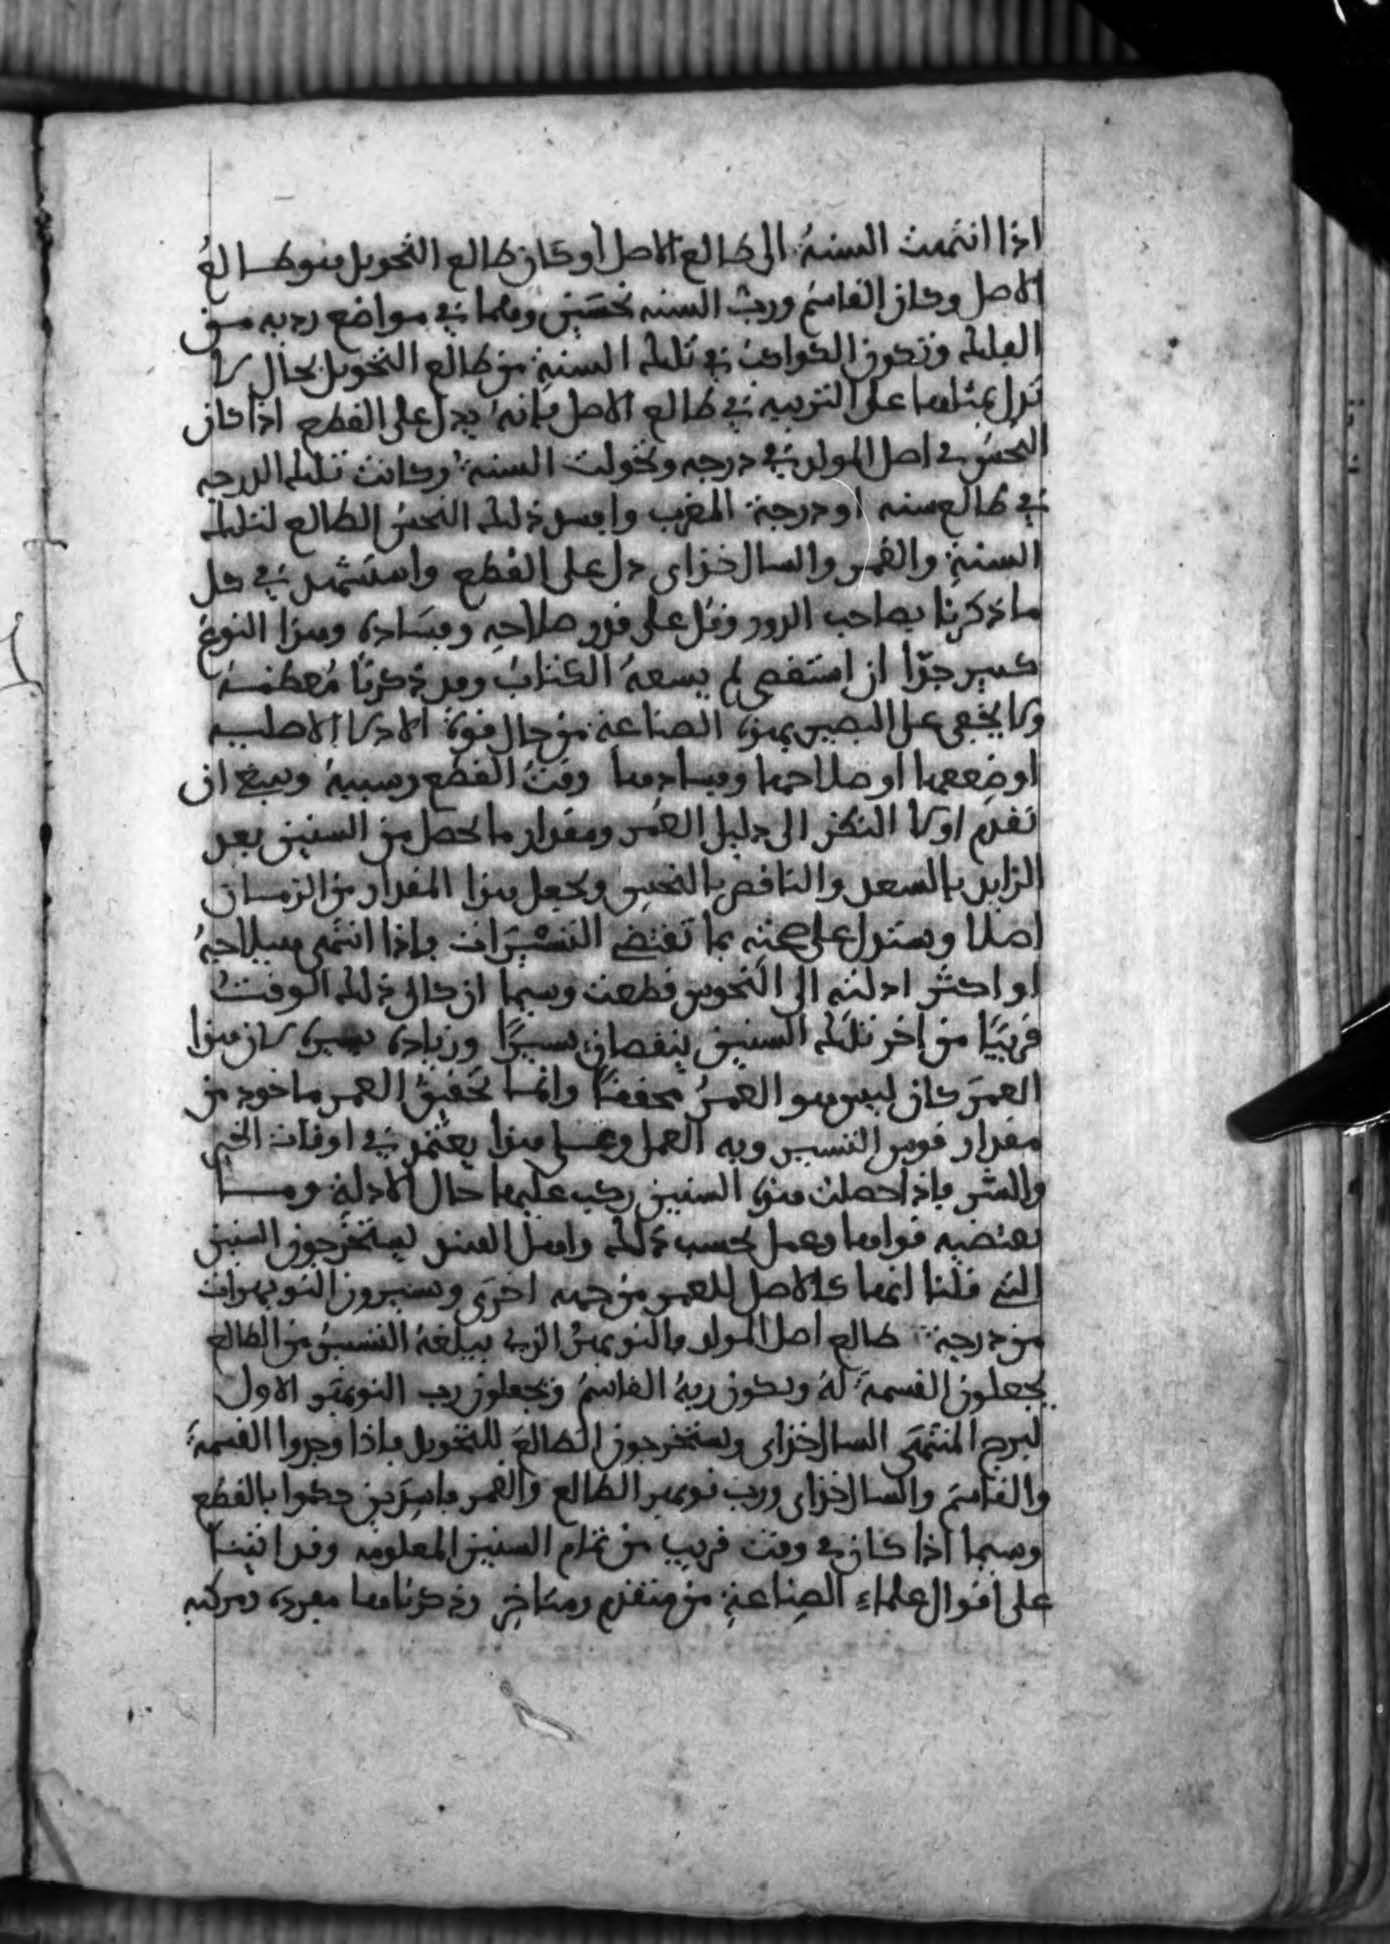 اذا انتهت السنة الى طالع الاصل او كان طالع التحويل هو طالع
الاصل وكان القاسم ورب السنه نحسين وهما في مواضع رديه من
الفلك وتكون الكواكب في تلك السنة من طالع التحويل بحال لا
تدل بمثلها على التربيه في طالع الاصل فإنه يدل على القطع اذا كان
النحس في اصل المولد في درجه وتحولت السنة وكانت تلك الدرجه
في طالع سنه او درجة المغرب وافسد ذلك النحس الطالع لتلك
السنة والقمر والسالخداى دل على القطع واستشهد في كل
ما ذكرنا بصاحب الدور وقل على قدر صلاحه وفساده وهذا النوع
كبير جدّا ان استقصى لم يسعه الكتاب وقد ذكرنا معظمه
ولا يخفى على البصير بهذه الصناعة من حال قوة الادلا الاصليه
او ضعفها او صلاحها وفسادها وقت القطع وسببه وينبغ ان
تقدم اولا النظر الى دليل العمر ومقدار ما يحصل من السنين بعد
الزايد بالسعد والناقص بالنحس ويجعل هذا المقدار من الزمان
اصلا ويستدل على صحته بما تقتضى التسييرات فإذا انتهى هيلاجه
او اكثر ادلته الى النحوس قطعت وسيما ان كان ذلك الوقت
قريبًا من اخر تلك السنين بنقصان يسيرًا وزيادة يسيرة لان هذا
العمر كان ليس هو العمر محققًا وانما تحقيق العمر ماخوذ من
مقدار قوس التسيير وبه العمل وعلى هذا يعتمد في اوقات الخير
والشر فإذا حصلت هذه السنين ركب عليها حال الادلة وما
تقتضيه قواها وعمل بحسب ذلك واهل الهند يستخرجون السنين
التي قلنا انها كالاصل للعمر من جهه اخرى ويسيرون النوبهرات
من درجة طالع اصل المولد فالنوبهر الذي يبلغه التسيير من الطالع
يجعلون القسمة له ويكون ربه القاسم ويجعلون رب النوبهر الاول
لبرج المنتهى السالخداى ويستخرجون الطالع للتحويل فإذا وجدوا القسمة
والقاسم والسالخداى ورب نوبهر الطالع والقمر فاسدين حكموا بالقطع
وسيما اذا كان في وقت قريب من تمام السنين المعلومه وقد اتينا
على اقوال علماء الصناعة من متقدم ومتاخر وذكرناها مفرده ومركبه